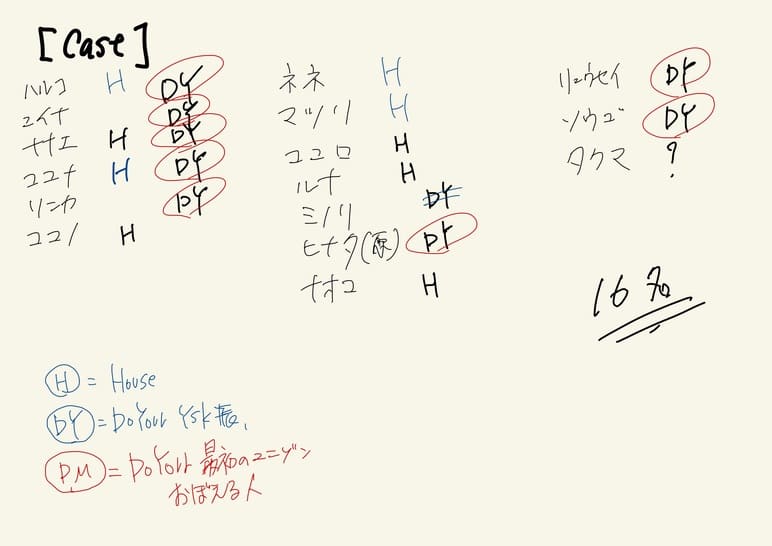 [Case]
ハルコ H DY
ユイナ DY
ナナエ H DY
ココナ H DY
リンカ DY
ココノ H
ネネ H
マツリ H
ココロ H
ルナ H
ミノリ DY
ヒナタ(原) DY
ナオコ H
リュウセイ DY
ソウゴ DY
タクマ ?
16名
H = House
DY = DoYour YSK振,
DM = DoYour 最初のユニゾン
おぼえる人